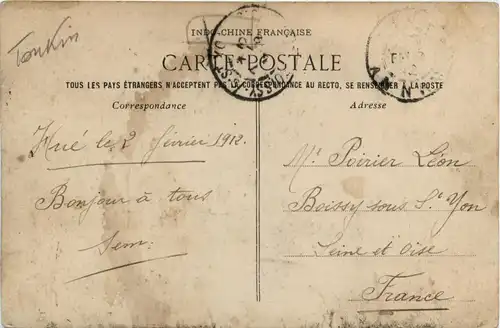 Tonkin
INDO-CHINE FRANÇAISE
CARTE POSTALE
TOUS LES PAYS ÉTRANGERS N'ACCEPTENT PAS LA CORRESPONDANCE AU RECTO, SE RENSEIGNER A LA POSTE
Correspondance
Adresse
Hué le 2 février 1912.
Bonjour à tous
Sem:
Mr. Poirier Léon
Boissy sous St Yon
Seine et Oise
France